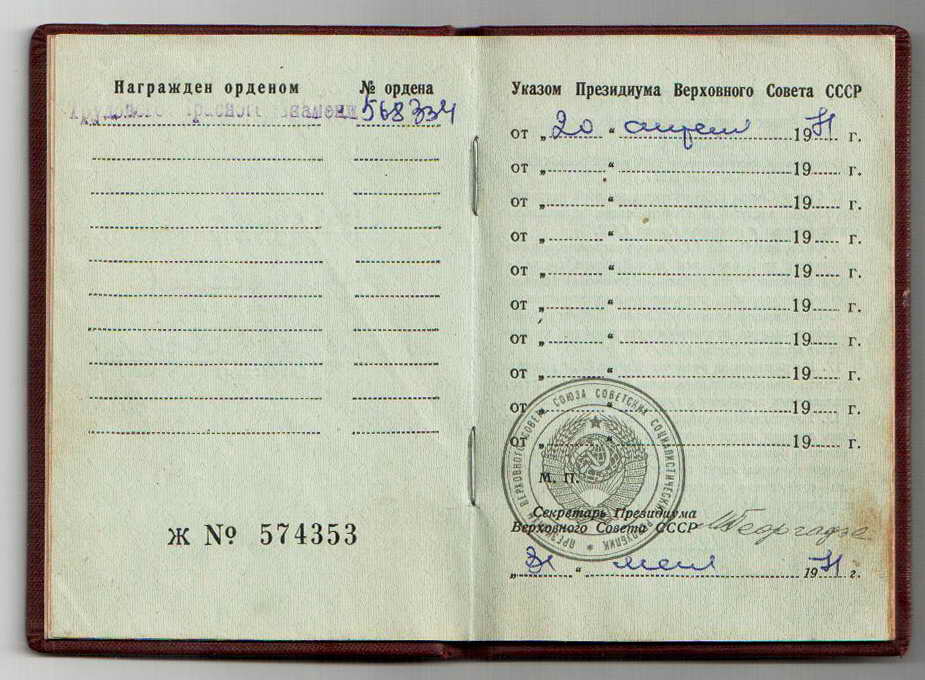 Награжден орденом № ордена
Трудового Красного Знамени 568334
Ж № 574353
Указом Президиума Верховного Совета СССР
от „20“ апреля 1971 г.
от „ “ 19 г.
от „ “ 19 г.
от „ “ 19 г.
от „ “ 19 г.
от „ “ 19 г.
от „ “ 19 г.
от „ “ 19 г.
от „ “ 19 г.
от „ “ 19 г.
ПРЕЗИДИУМ ВЕРХОВНОГО СОВЕТА СОЮЗА СОВЕТСКИХ СОЦИАЛИСТИЧЕСКИХ РЕСПУБЛИК
М. П.
Секретарь Президиума
Верховного Совета СССР МГеоргадзе
„31“ мая 1971 г.